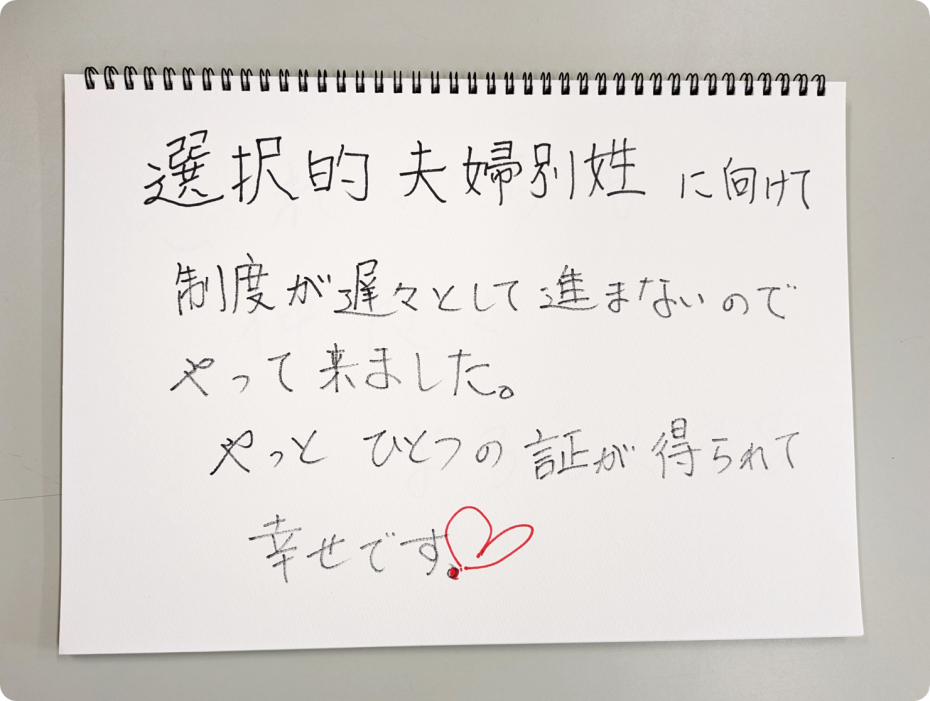 選択的夫婦別姓に向けて
制度が遅々として進まないので
やって来ました。
やっとひとつの証が得られて
幸せです。